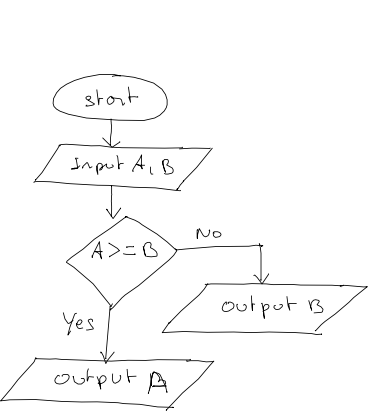 start
Input A, B
A >= B
No
Yes
output B
output A